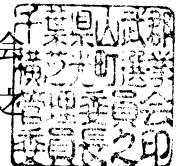 千葉県山武郡
横芝光町選挙
管理委員会
委員長之印
会